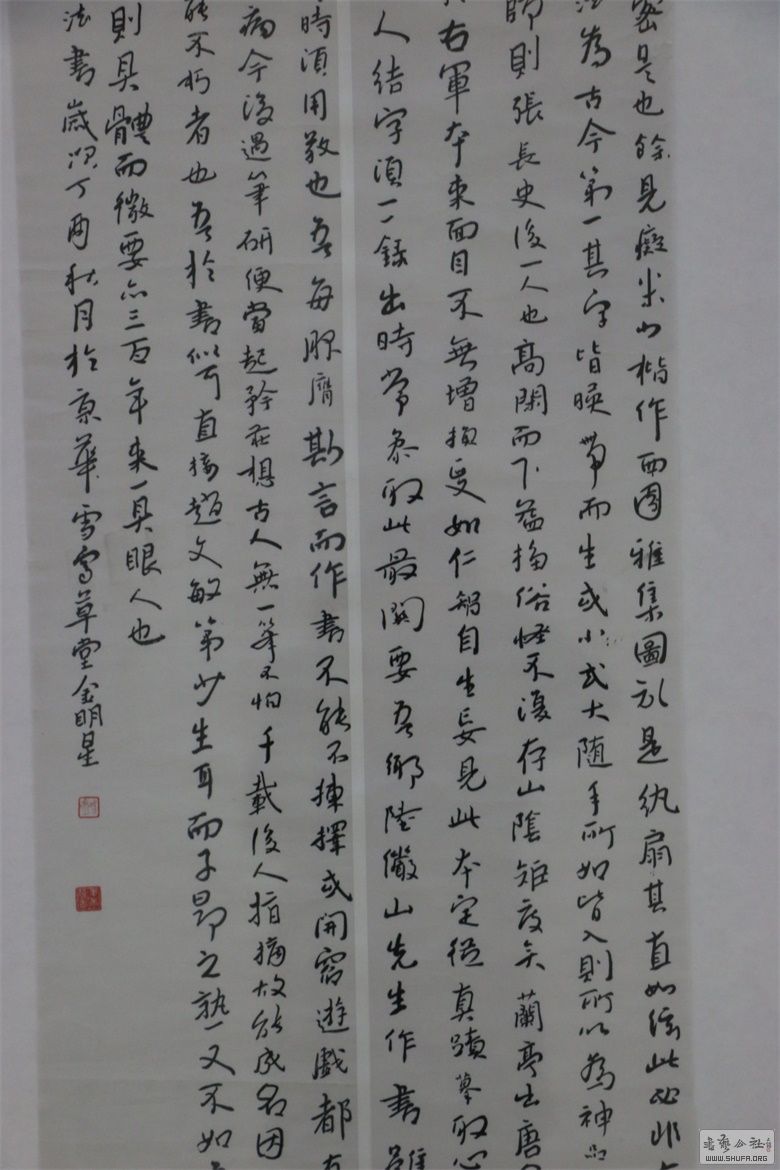 密是也餘見癡米小楷作西園雅集圖記是紈扇其直如弦此必非
法為古今第一其字皆映帶而生或小或大随手所如皆入則所以為神品
師則張長史後一人也高閑而下益揚俗怪不復存山陰矩度矣蘭亭出唐
右軍本來面目不無增損更如仁智自生妄見此本定從真蹟摹取心
人結字須一録出時常參取此最關要吾鄉陸儼山先生作書雖
時須用敬也吾每服膺斯言而作書不能不揀擇或閒窗遊戲都有
病今後遇筆研便當起矜莊想古人無一筆不怕千載後人指摘故能成名因
能不朽者也吾於書似可直接趙文敏第少生耳而子昂之熟又不如
則具體而微要亦三百年來一具眼人也
法書歲次丁酉秋月於京華雪草堂金明星
書藝公社
WWW.SHUFA.ORG